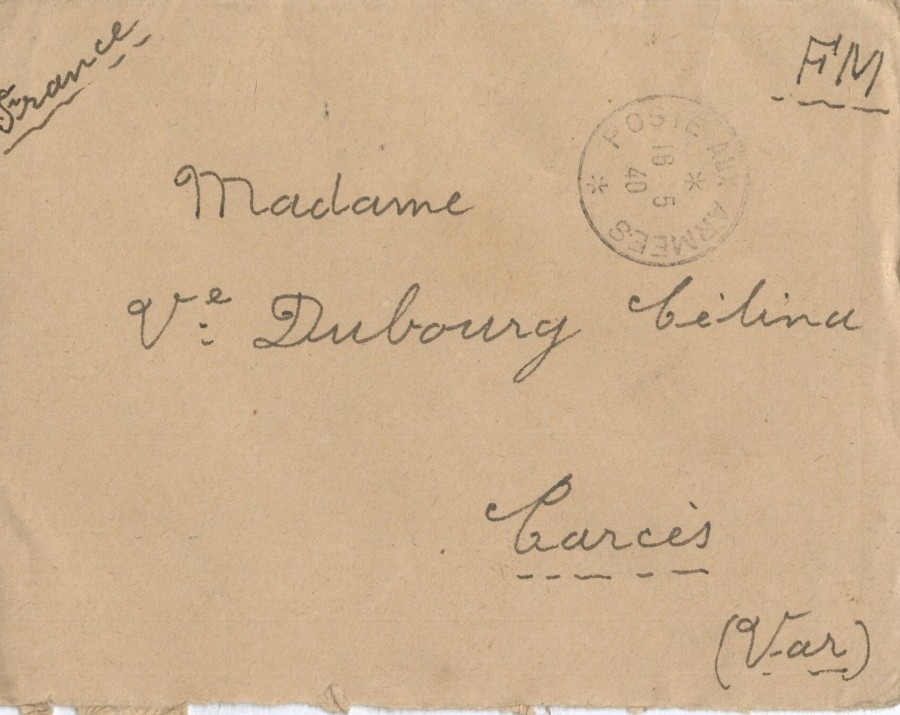 France
FM
POSTE AUX ARMEES
16 5
40
Madame
Vᵉ Dubourg Célina
Carcès
(Var)